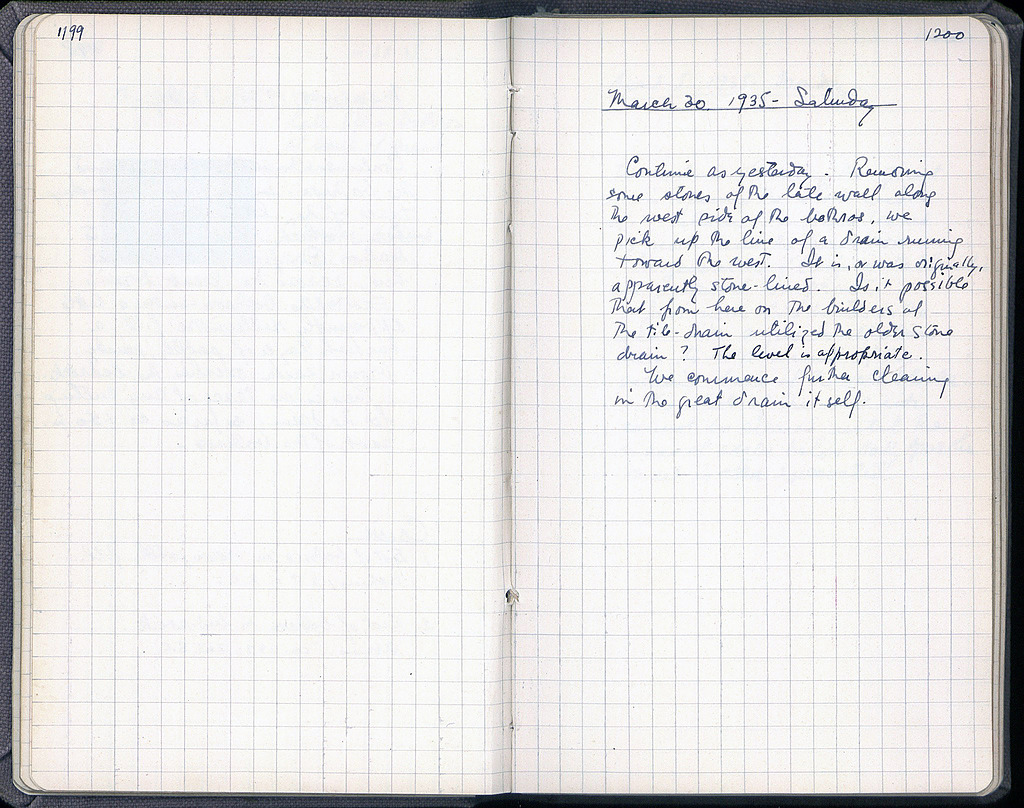 1199
1200
March 30 1935 - Saturday
Continue as yesterday. Removing
some stones of the late wall along
the west side of the bothros, we
pick up the line of a drain running
toward the west. It is, or was originally,
apparently stone-lined. Is it possible
that from here on the builders of
the tile-drain utilized the older stone
drain? The level is appropriate.
We commence further cleaning
in the great drain itself.